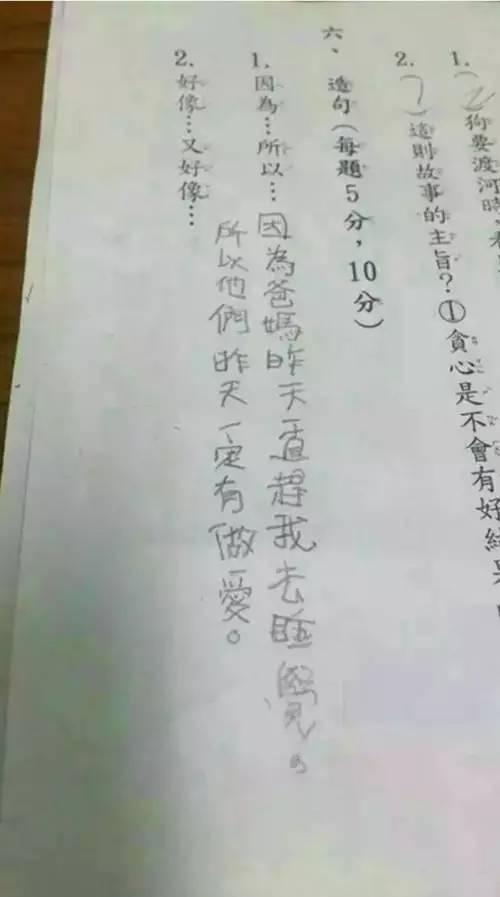 1.(2)狗要渡河時,看
2.( )這則故事的主旨?①貪心是不會有好結果
六、造句(每題5分,10分)
1.因為…所以…因為爸媽昨天一直趕我去睡覺。
所以他們昨天一定有做愛。
2.好像…又好像…